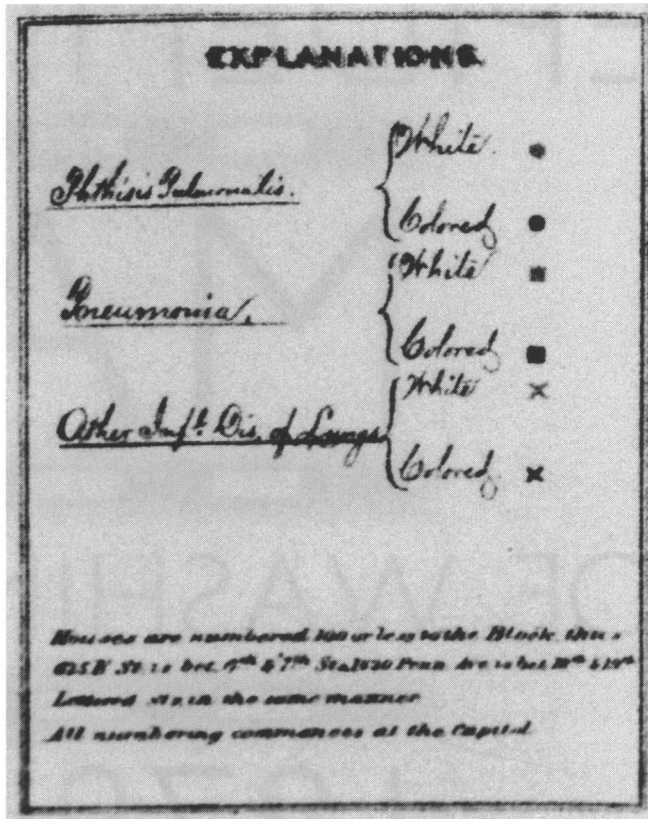 EXPLANATIONS.
White.
Phthisis Pulmonalis.
Colored
White
Pneumonia,
Colored
White
Other Inft. Dis. of Lungs
Colored
Houses are numbered 100 or less to the Block, thus
625 B St. is bet. 6th & 7th Sts. 1820 Penn. Ave. is bet. 18th & 19th
Lettered sts. in the same manner
All numbering commences at the Capitol.
OF WASHI